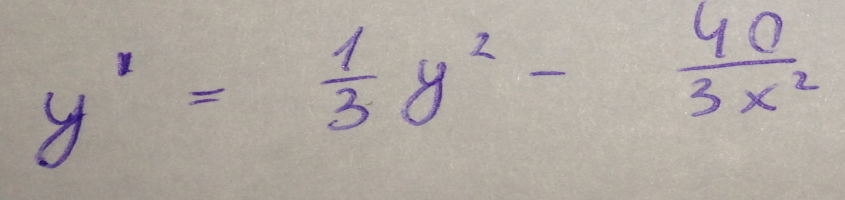 y' = 1/3 y² - 40/3x²